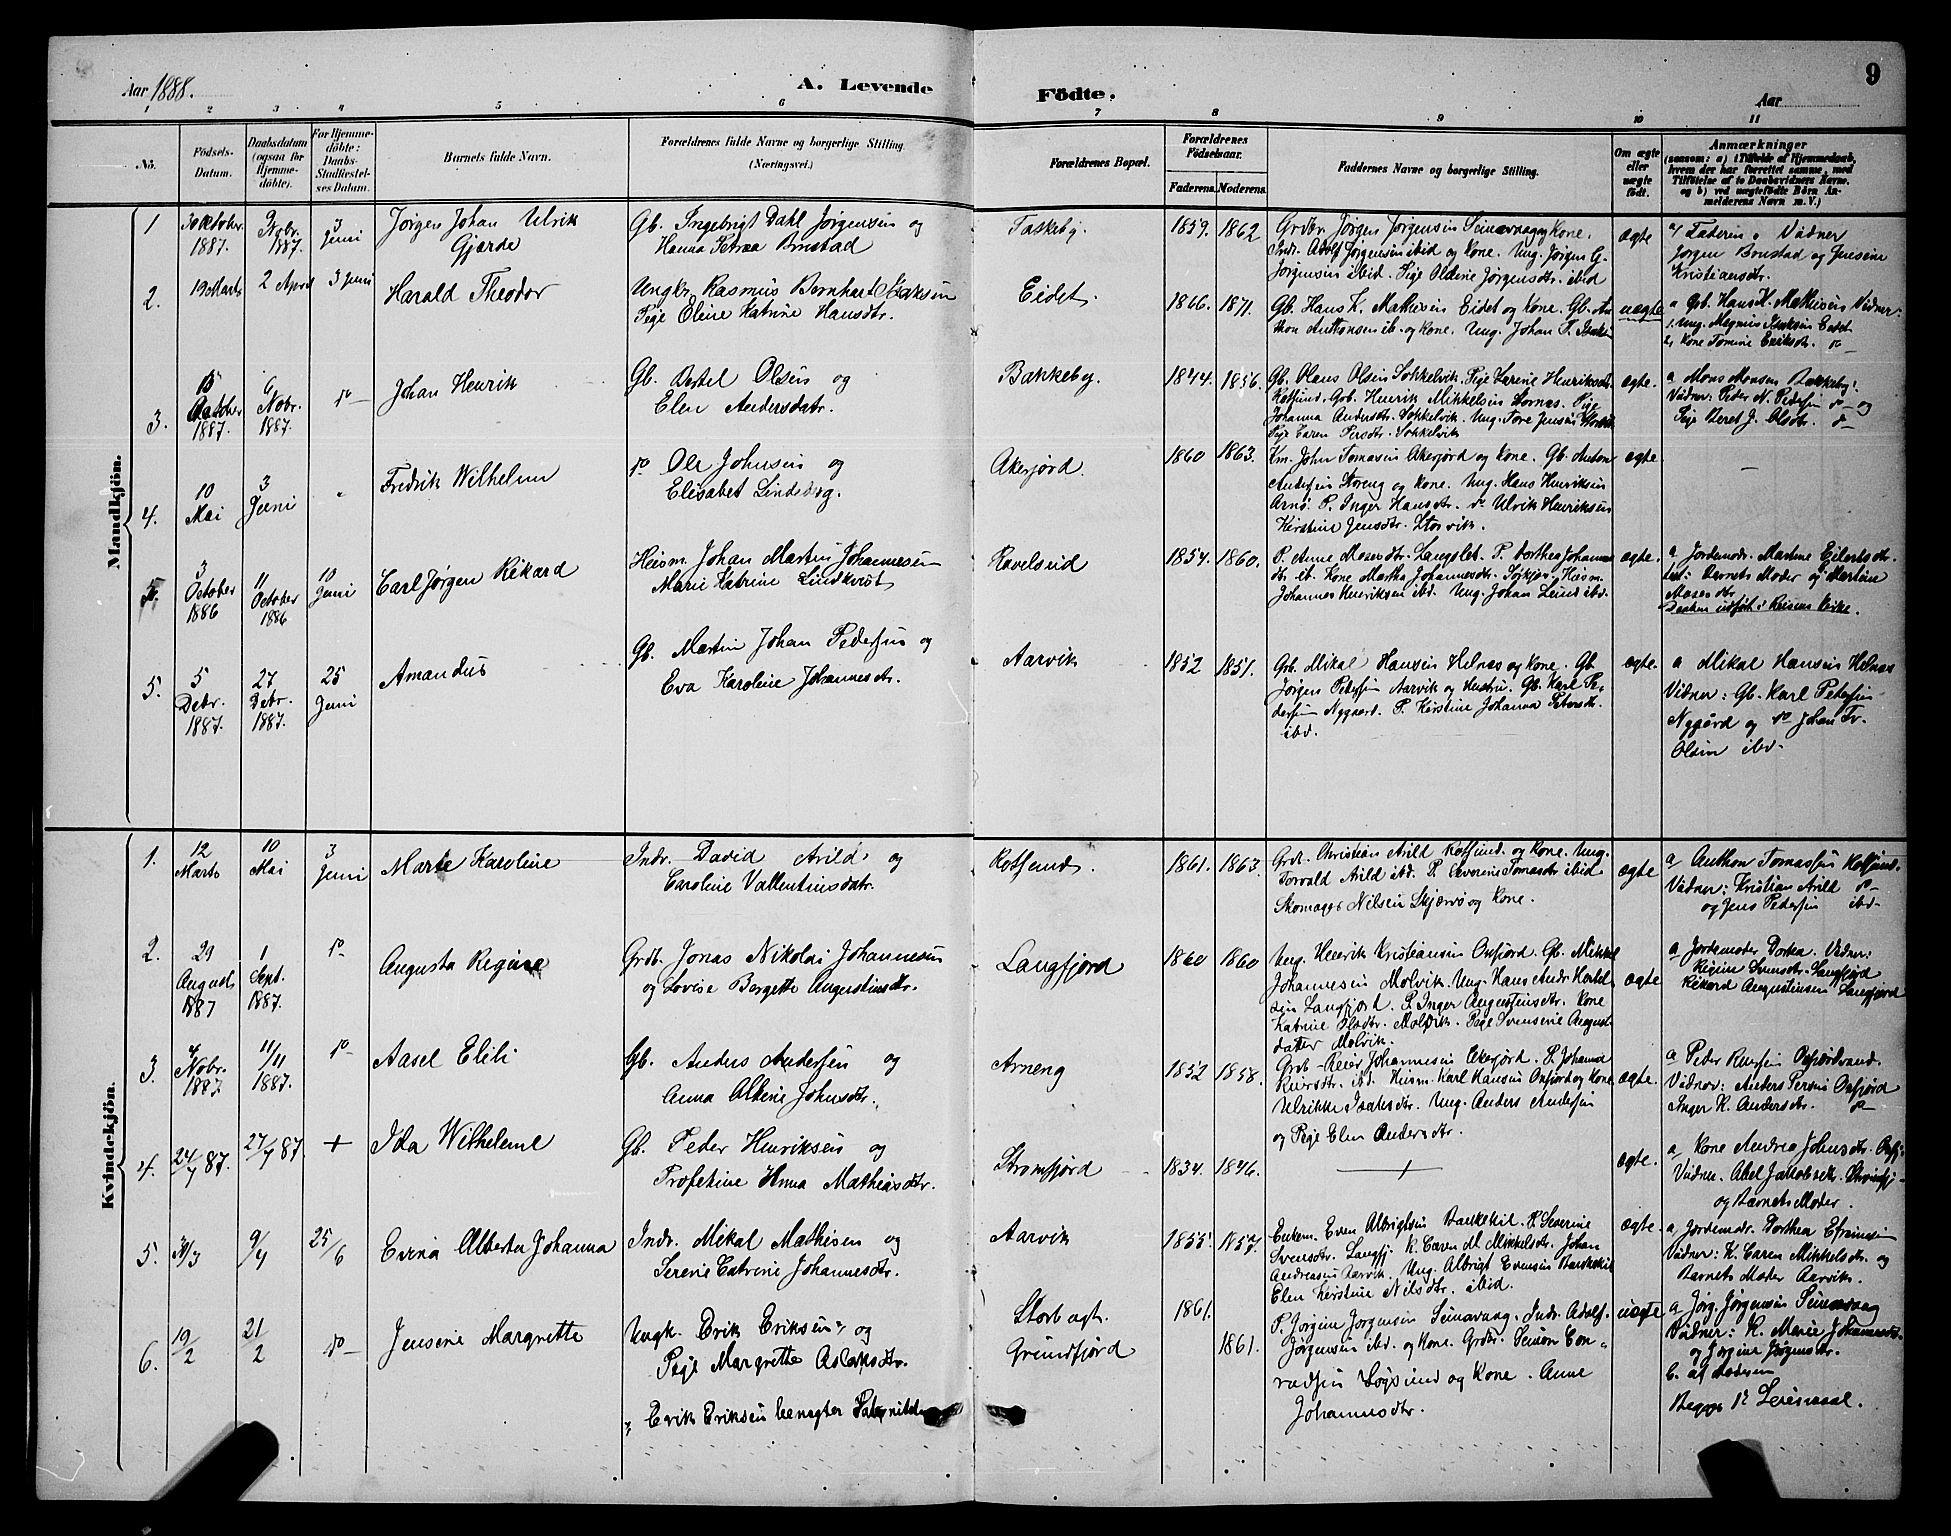 Aar 1888.
A. Levende
Födte.
Aar
9
1 2 3 4 5 6 7 8 9 10 11
No.
Födsels-
Datum.
Daabsdatum
(ogsaa for
Hjemme-
döbte).
For Hjemme-
döbte:
Daabs-
Stadfæstel-
ses Datum.
Barnets fulde Navn.
Forældrenes fulde Navne og borgerlige Stilling.
(Næringsvei.)
Forældrenes Bopæl.
Forældrenes
Födselsaar.
Faderens. Moderens.
Faddernes Navne og borgerlige Stilling.
Om ægte
eller
uægte
födt.
Anmærkninger
(saasom: a) i Tilfælde af Hjemmedaab,
hvem der har forrettet samme, med
Tilföielse af to Daabsvidners Navne.
og b) ved uægtefödte Börn An-
melderens Navn m. V.)
Mandkjön.
1
3 Oktober
1887.
Nobr.
1887.
3
Juni
Jørgen Johan Ulrik
Gjærde
Gb. Ingebrigt Dahl Jørgensen og
Hanna Petrea Bonstad
Taskeby.
1859. 1862
Grdbr. Jørgen Jørgensen og Kone.
Indr. Adolf Jørgensen ibid og Kone. Ung. Jørgen G.
Jørgensen ibid. Pige Oldine Jørgensdtr. ibid
ægte
a/ Faderen. Vidner
Jørgen Bonstad og Jensine
Kristiansdtr.
2.
19 Marts
2 April
3 Juni
Harald Theodor
Ungkr. Rasmus Bernhart Isaksen
Pige Oleine Katrine Hansdtr.
Eidet.
1866. 1871.
Gb. Hans K. Mathisen Eidet og Kone. Gb. An
thon Anthonsen ib. og Kone. Ung. Johan P. Isaksen
uægte
a Gb. Hans K. Mathisen Vidner:
1. Ung. Magnus Isaksen Eidet
2. Kone Tomine Eriksdtr. do
3.
15
October
1887.
6
Nobr.
1887.
do
Johan Henrik
Gb. Bertel Olsen og
Elen Andersdatr.
Bakkeby.
1844. 1856.
Gb. Olaus Olsen Sokkelvik. Pige Karine Henriksdtr.
Rotsund. Gb. Henrik Mikkelsen Stornæs. Pige
Johanna Andersdtr. Sokkelvik. Ung. Tore Jensen
Pige Karen Persdtr. Sokkelvik
ægte.
a Mons Monsen Bakkeby.
Vidner: Peder N. Pedersen do og
Pige Beret J. Olsdtr. do
4.
10
Mai
3
Juni
"
Fredrik Wilhelm
do Ole Johnsen og
Elisabet Lindberg.
Akerfjord.
1860 1863.
Km. John Tomasen Akerfjord og Kone. Gb. Anton
Andersen Storeng og Kone. Ung. Hans Henriksen
Arnø. P. Inger Hansdtr. do Ulrik Henriksen
Kirstine Jensdtr. Storvik.
ægte.
—
5.
3
October
1886
11
October
1886
10
Juni
Carl Jørgen Rikard
Husm. Johan Martin Johannesen
Marie Katrine Lindkvist
Ravelseid
1854. 1860.
P. Anne Mosesdtr. Langslet. P. Dorthea Johannes
dtr. ib. Kone Martha Johannesdtr. Sørkjos og Husm.
Johannes Henriksen ibd. Ung. Johan Lund ibd.
ægte.
a Jordemodr. Martine Eilertsdtr.
Test: Barnets Moder og Martine
Mosesdtr.
Daaben udført i Reisens Kirke.
5.
5
Debr.
1887.
27
Debr.
1887.
25
Juni
Amandus
Gb. Martin Johan Pedersen og
Eva Karoline Johannesdtr.
Aarvik
1852 1851.
Gb. Mikal Hansen Helnæs og Kone. Gb.
Jørgen Pedersen Aarvik og Hustru. Gb. Karl Pe-
dersen Nygaard. P. Kirstine Johanna Petersdtr.
ibd.
ægte.
a Mikal Hansen Helnæs
Vidner: Gb. Karl Pedersen
Nygård og do Johan Fr.
Olsen ibd.
Kvindekjön.
1.
12
Marts
10
Mai
3
Juni
Marie Karoline
Indr. David Arild og
Caroline Vallentinsdatr.
Rotsund.
1861. 1863.
Grdb. Christian Arild Rotsund. og Kone. Ung.
Torvald Arild ibd. P. Severine Tomasdtr. ibid
Skomager Nilsen Skjærvø og Kone.
ægte
a Anthon Tomassen Rotsund.
Vidner: Kristian Arild do
og Jens Pedersen ibd.
2.
29
August
1887
1
Sept.
1887.
do
Augusta Regine
Grdb. Jonas Nikolai Johannesen
og Lovise Bergette Augustinsdtr.
Langfjord
1860 1860
Ung. Henrik Kristiansen Oxfjord. Gb. Mikkel
Johannesen Molvik. Ung. Hans Andr.
sen Langfjord. P. Inger Augustinsdtr. Kone
Katrine Olsdtr. Molvik. Pige Severine August
datter Molvik.
ægte
a Jordemoder Dorka. Vidner:
Regine Svensdtr. Langfjord
Rikard Augustinsen Langfjord
3.
4
Nobr.
1887.
11/11
1887.
do
Aasel Elili
Gb. Anders Andersen og
Anna Aldine Johnsdtr.
Arneng
1852 1858.
Grdb. Reier Johannesen Akerfjord. P. Johanna
Reiersdtr. ibd. Husm. Karl Hansen Oxfjord og Kone
Ulrikke Isaksdtr. Ung. Anders Andersen
og Pige Elen Andersdtr.
ægte.
a Peder Reiersen Oxfjordvand.
Vidner: Anders Persen Oxfjord
Inger K. Andersdtr. do
4.
24/7 87.
27/7 87.
+
Ida Wilhelme
Gb. Peder Henriksen og
Trofekine Anna Mathiasdtr.
Strømfjord
1834. 1846.
+
ægte.
a Kone Andrea Johnsdtr.
Vidner. Abel Jakobsdtr.
og Barnets Moder
5.
31/3
9/4
25/6
Evina Alberta Johanna
Indr. Mikal Mathisen og
Serene Catrine Johannesdtr.
Aarvik
1855. 1857.
Enkem. Even Albrigtsen Bakkekil. K. Severine
Svensdtr. Langfj. K. Caren M. Mikkelsdtr. Johan
Andreasen Aarvik. Ung. Albrigt Evensen Bakkekil
Elen Kirstine Nilsdtr. ibid.
ægte.
a Jordemdr. Dorthea Efraimsen
Vidner: K. Caren Mikkelsdtr. og
Barnets Moder Aarvik.
6.
19/2
21/2
do
Jensine Margrette
Ungk. Erik Eriksen og
Pige Margrette Aslaksdtr.
" Erik Eriksen benægter Paterniteten
Storbugt.
Grundfjord
1861.
1861.
P. Jorgine Jorgensen. Indr. Adolf
Jørgensen ibd. og Kone. Grdbr. Simon Con-
radsen Løgsund og Kone. Anne
Johannesdtr.
uægte
a Jørg. Jørgensen
Vidner: K. Marie Johannesdtr.
og Jorgine Jørgensdtr.
b. af Moderen
Begge 1ste Leiermaal.